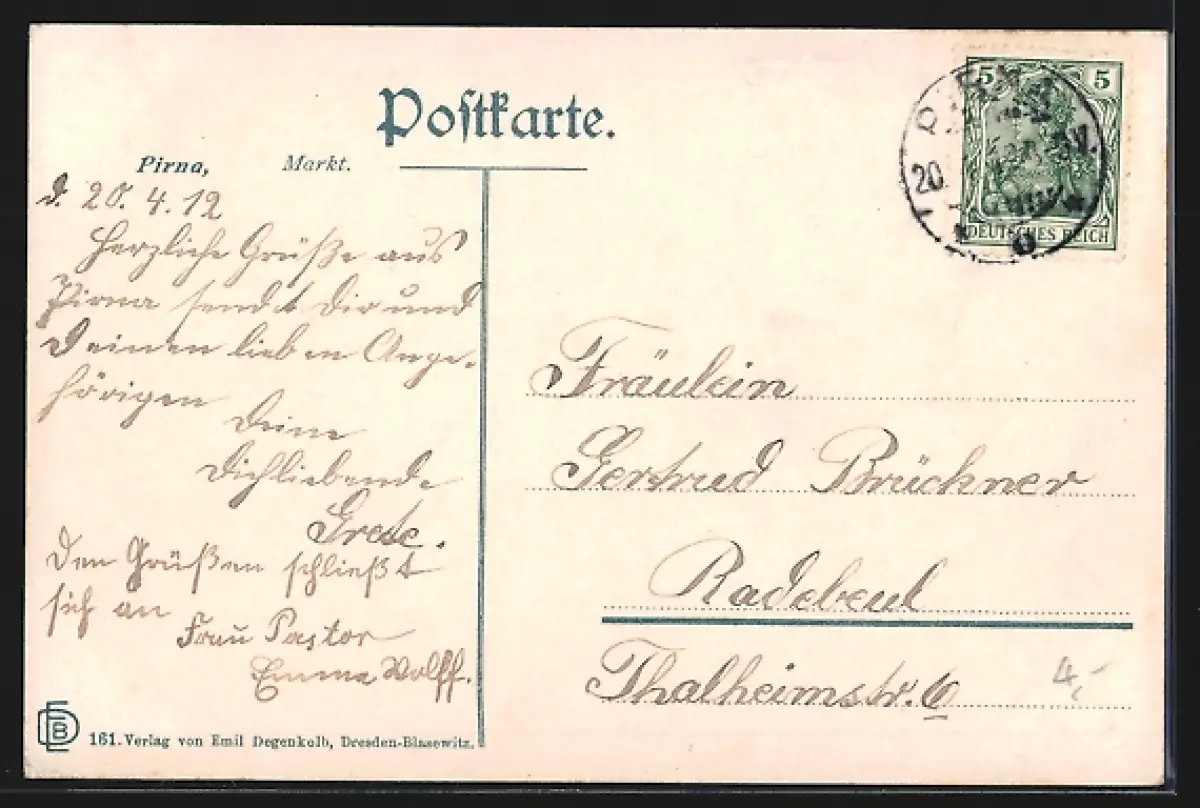 Postkarte.
Pirna, Markt.
d. 20. 4. 12
Herzliche Grüße aus
Pirna sendet Dir und
Deinen lieben Ange-
hörigen
Deine
Dichliebende
Grete.
Den Grüßen schließt
sich an
Frau Pastor
Emma Wolff.
161. Verlag von Emil Degenkolb, Dresden-Blasewitz.
EDB
PIRNA
20
5 5
DEUTSCHES REICH
Fräulein
Gertrud Brückner
Radebeul
Thalheimstr. 6
4,-